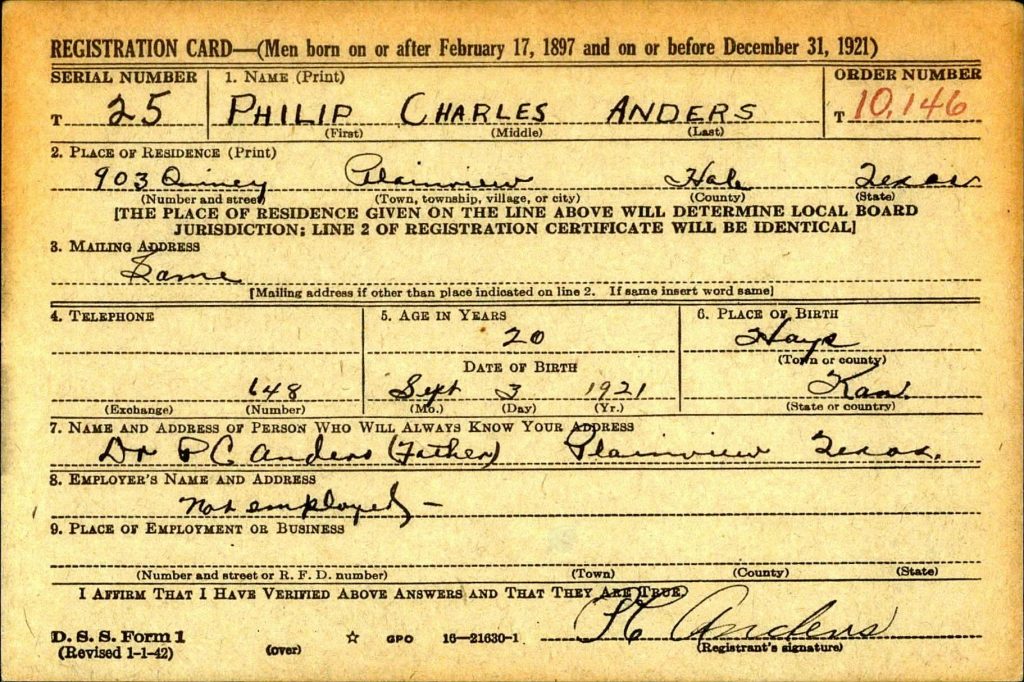 REGISTRATION CARD—(Men born on or after February 17, 1897 and on or before December 31, 1921)
SERIAL NUMBER 1. NAME (Print) ORDER NUMBER
T 25 PHILIP CHARLES ANDERS T 10,146
(First) (Middle) (Last)
2. PLACE OF RESIDENCE (Print)
903 Quincy Plainview Hale Texas
(Number and street) (Town, township, village, or city) (County) (State)
[THE PLACE OF RESIDENCE GIVEN ON THE LINE ABOVE WILL DETERMINE LOCAL BOARD
JURISDICTION; LINE 2 OF REGISTRATION CERTIFICATE WILL BE IDENTICAL]
3. MAILING ADDRESS
Same
[Mailing address if other than place indicated on line 2. If same insert word same]
4. TELEPHONE 5. AGE IN YEARS 6. PLACE OF BIRTH
20 Hays
(Town or county)
DATE OF BIRTH
648 Sept 3 1921 Kan.
(Exchange) (Number) (Mo.) (Day) (Yr.) (State or country)
7. NAME AND ADDRESS OF PERSON WHO WILL ALWAYS KNOW YOUR ADDRESS
Dr P C Anders (Father) Plainview Texas.
8. EMPLOYER'S NAME AND ADDRESS
Not employed —
9. PLACE OF EMPLOYMENT OR BUSINESS
(Number and street or R. F. D. number) (Town) (County) (State)
I AFFIRM THAT I HAVE VERIFIED ABOVE ANSWERS AND THAT THEY ARE TRUE.
P C Anders
D. S. S. Form 1 ☆ GPO 16—21630-1
(Revised 1-1-42) (over) (Registrant's signature)